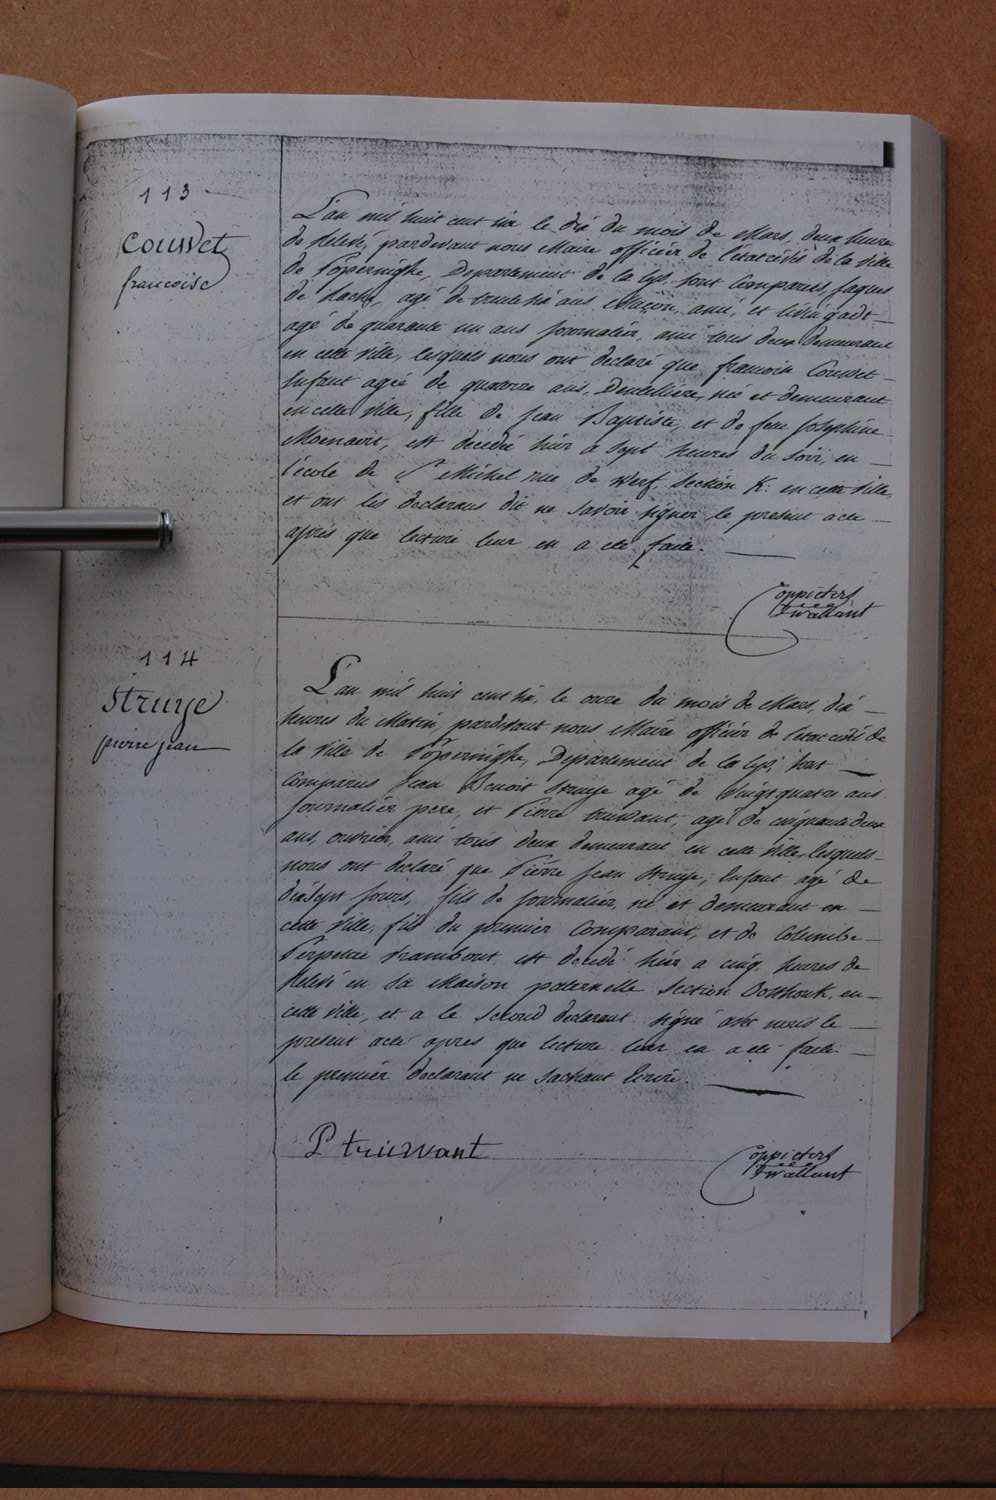 113
couwet
francoise
L'an mil huit cent six le dix du mois de Mars, deux heures
de Relevé, pardevant nous Maire officier de l'état civil de la ville
de Poperinghe, Departement de la Lys. sont Comparus, Jaques
de agé de trente six ans Maçon, ami, et
agé de quarante un ans Journalier, ami tous deux Demeurant
en cette ville, lesquels nous ont declaré que francoise Couwet
Enfant agée de quatorze ans, Dentellière, née et demeurant
en cette Ville, fille de Jean Baptiste, et de feu Josephine
est decedé hier a Sept heures du Soir, en
l'école de St Michel rue de Werf section K. en cette Ville,
et ont les declarans dit ne savoir signer le present acte
après que lecture leur en a été faite.
Coppieters
t'wallant
114
Struye
pierre jean
L'an mil huit cent six, le onze du mois de Mars, dix
heures du Matin, pardevant nous Maire officier de l'état civil de
la ville de Poperinghe, Departement de la Lys, sont
Comparus Jean Benoit Struye agé de Vingt quatre ans
Journalier pere, et Pierre truwant, agé de cinquante deux
ans, ouvrier, ami tous deux demeurant en cette Ville, lesquels
nous ont declaré que Pierre Jean Struye, Enfant agé de
dixsept Jours, fils de Journalier, né et demeurant en
cette Ville, fils du premier Comparant, et de Colombe
Perpetue trambout, est decedé hier a cinq heures de
Relevé en Sa Maison paternelle Section Oosthouk, en
cette Ville, et a le Second declarant signé avec nous le
présent acte apres que lecture leur en a été faite.
le premier declarant ne sachant Ecrire.
P truwant
Coppieters
t'wallant